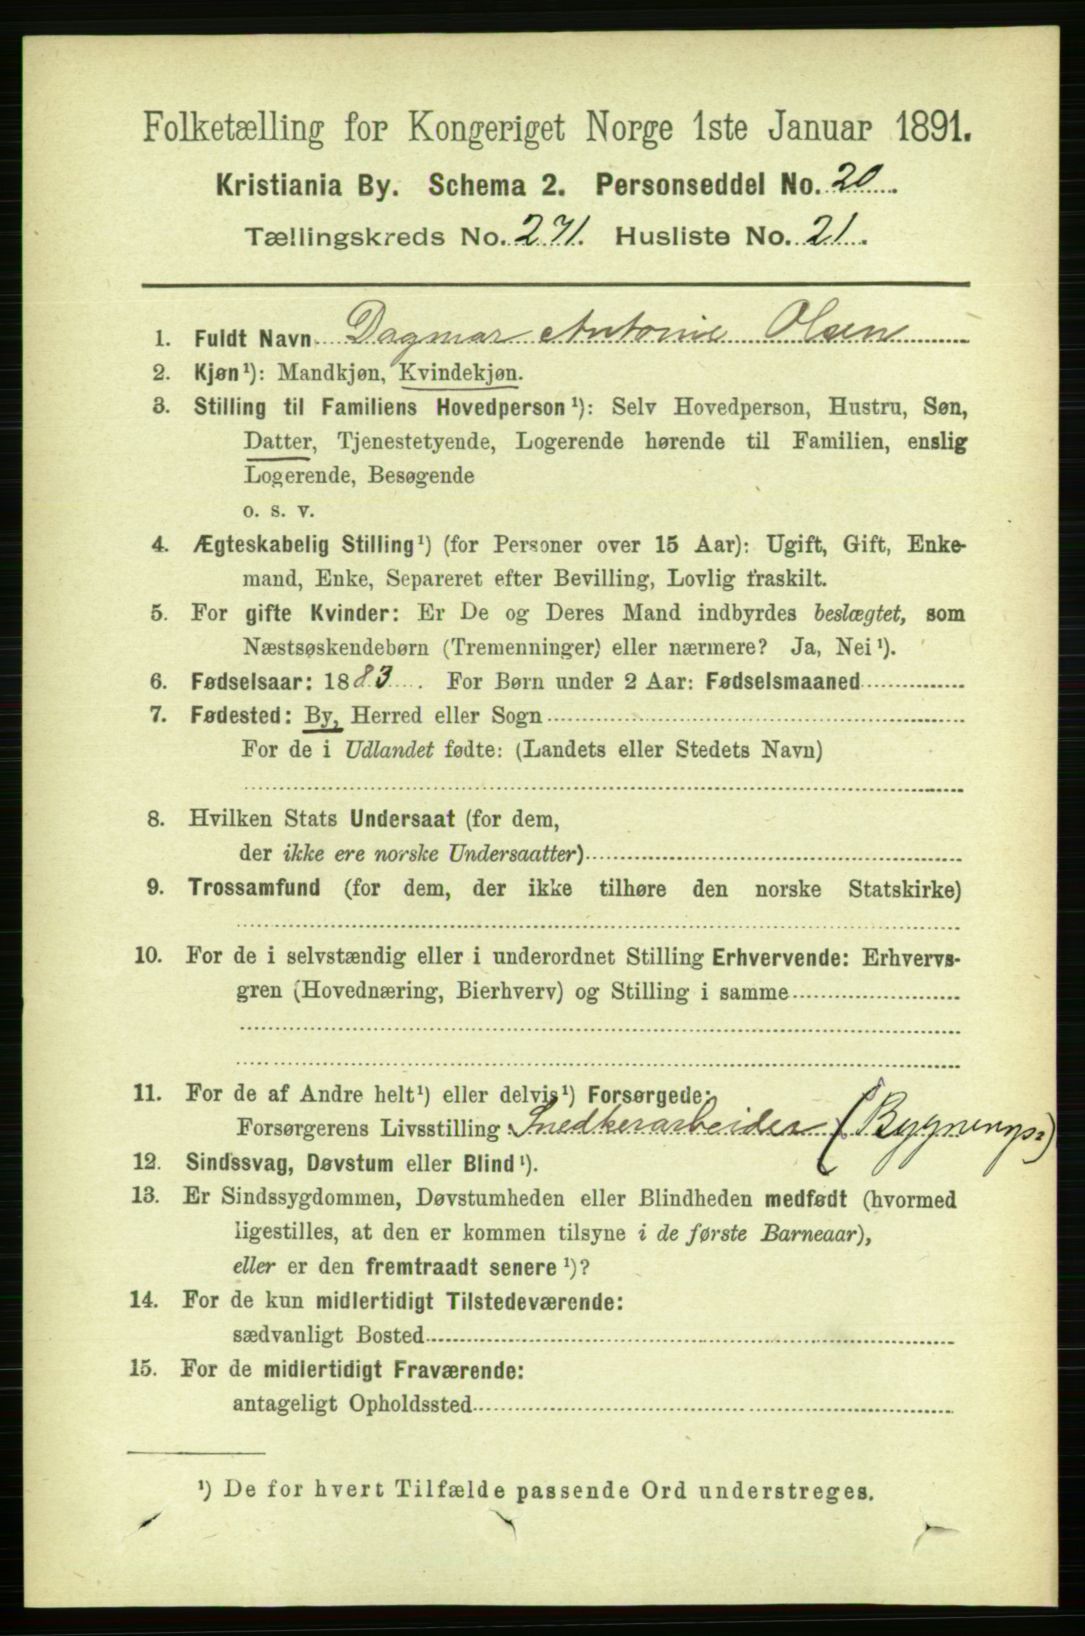 Folketælling for Kongeriget Norge 1ste Januar 1891.
Kristiania By. Schema 2. Personseddel No. 20.
Tællingskreds No. 271. Husliste No. 21.
1. Fuldt Navn Dagmar Antonie Olsen
2. Kjøn¹): Mandkjøn, Kvindekjøn.
3. Stilling til Familiens Hovedperson¹): Selv Hovedperson, Hustru, Søn,
Datter, Tjenestetyende, Logerende hørende til Familien, enslig
Logerende, Besøgende
o. s. v.
4. Ægteskabelig Stilling¹) (for Personer over 15 Aar): Ugift, Gift, Enke-
mand, Enke, Separeret efter Bevilling, Lovlig fraskilt.
5. For gifte Kvinder: Er De og Deres Mand indbyrdes beslægtet, som
Næstsøskendebørn (Tremenninger) eller nærmere? Ja, Nei¹).
6. Fødselsaar: 1883. For Børn under 2 Aar: Fødselsmaaned
7. Fødested: By, Herred eller Sogn
For de i Udlandet fødte: (Landets eller Stedets Navn)
8. Hvilken Stats Undersaat (for dem,
der ikke ere norske Undersaatter)
9. Trossamfund (for dem, der ikke tilhøre den norske Statskirke)
10. For de i selvstændig eller i underordnet Stilling Erhvervende: Erhvervs-
gren (Hovednæring, Bierhverv) og Stilling i samme
11. For de af Andre helt¹) eller delvis¹) Forsørgede:
Forsørgerens Livsstilling: Snedkerarbeider (Bygnings)
12. Sindssvag, Døvstum eller Blind¹).
13. Er Sindssygdommen, Døvstumheden eller Blindheden medfødt (hvormed
ligestilles, at den er kommen tilsyne i de første Barneaar),
eller er den fremtraadt senere¹)?
14. For de kun midlertidigt Tilstedeværende:
sædvanligt Bosted
15. For de midlertidigt Fraværende:
antageligt Opholdssted
¹) De for hvert Tilfælde passende Ord understreges.